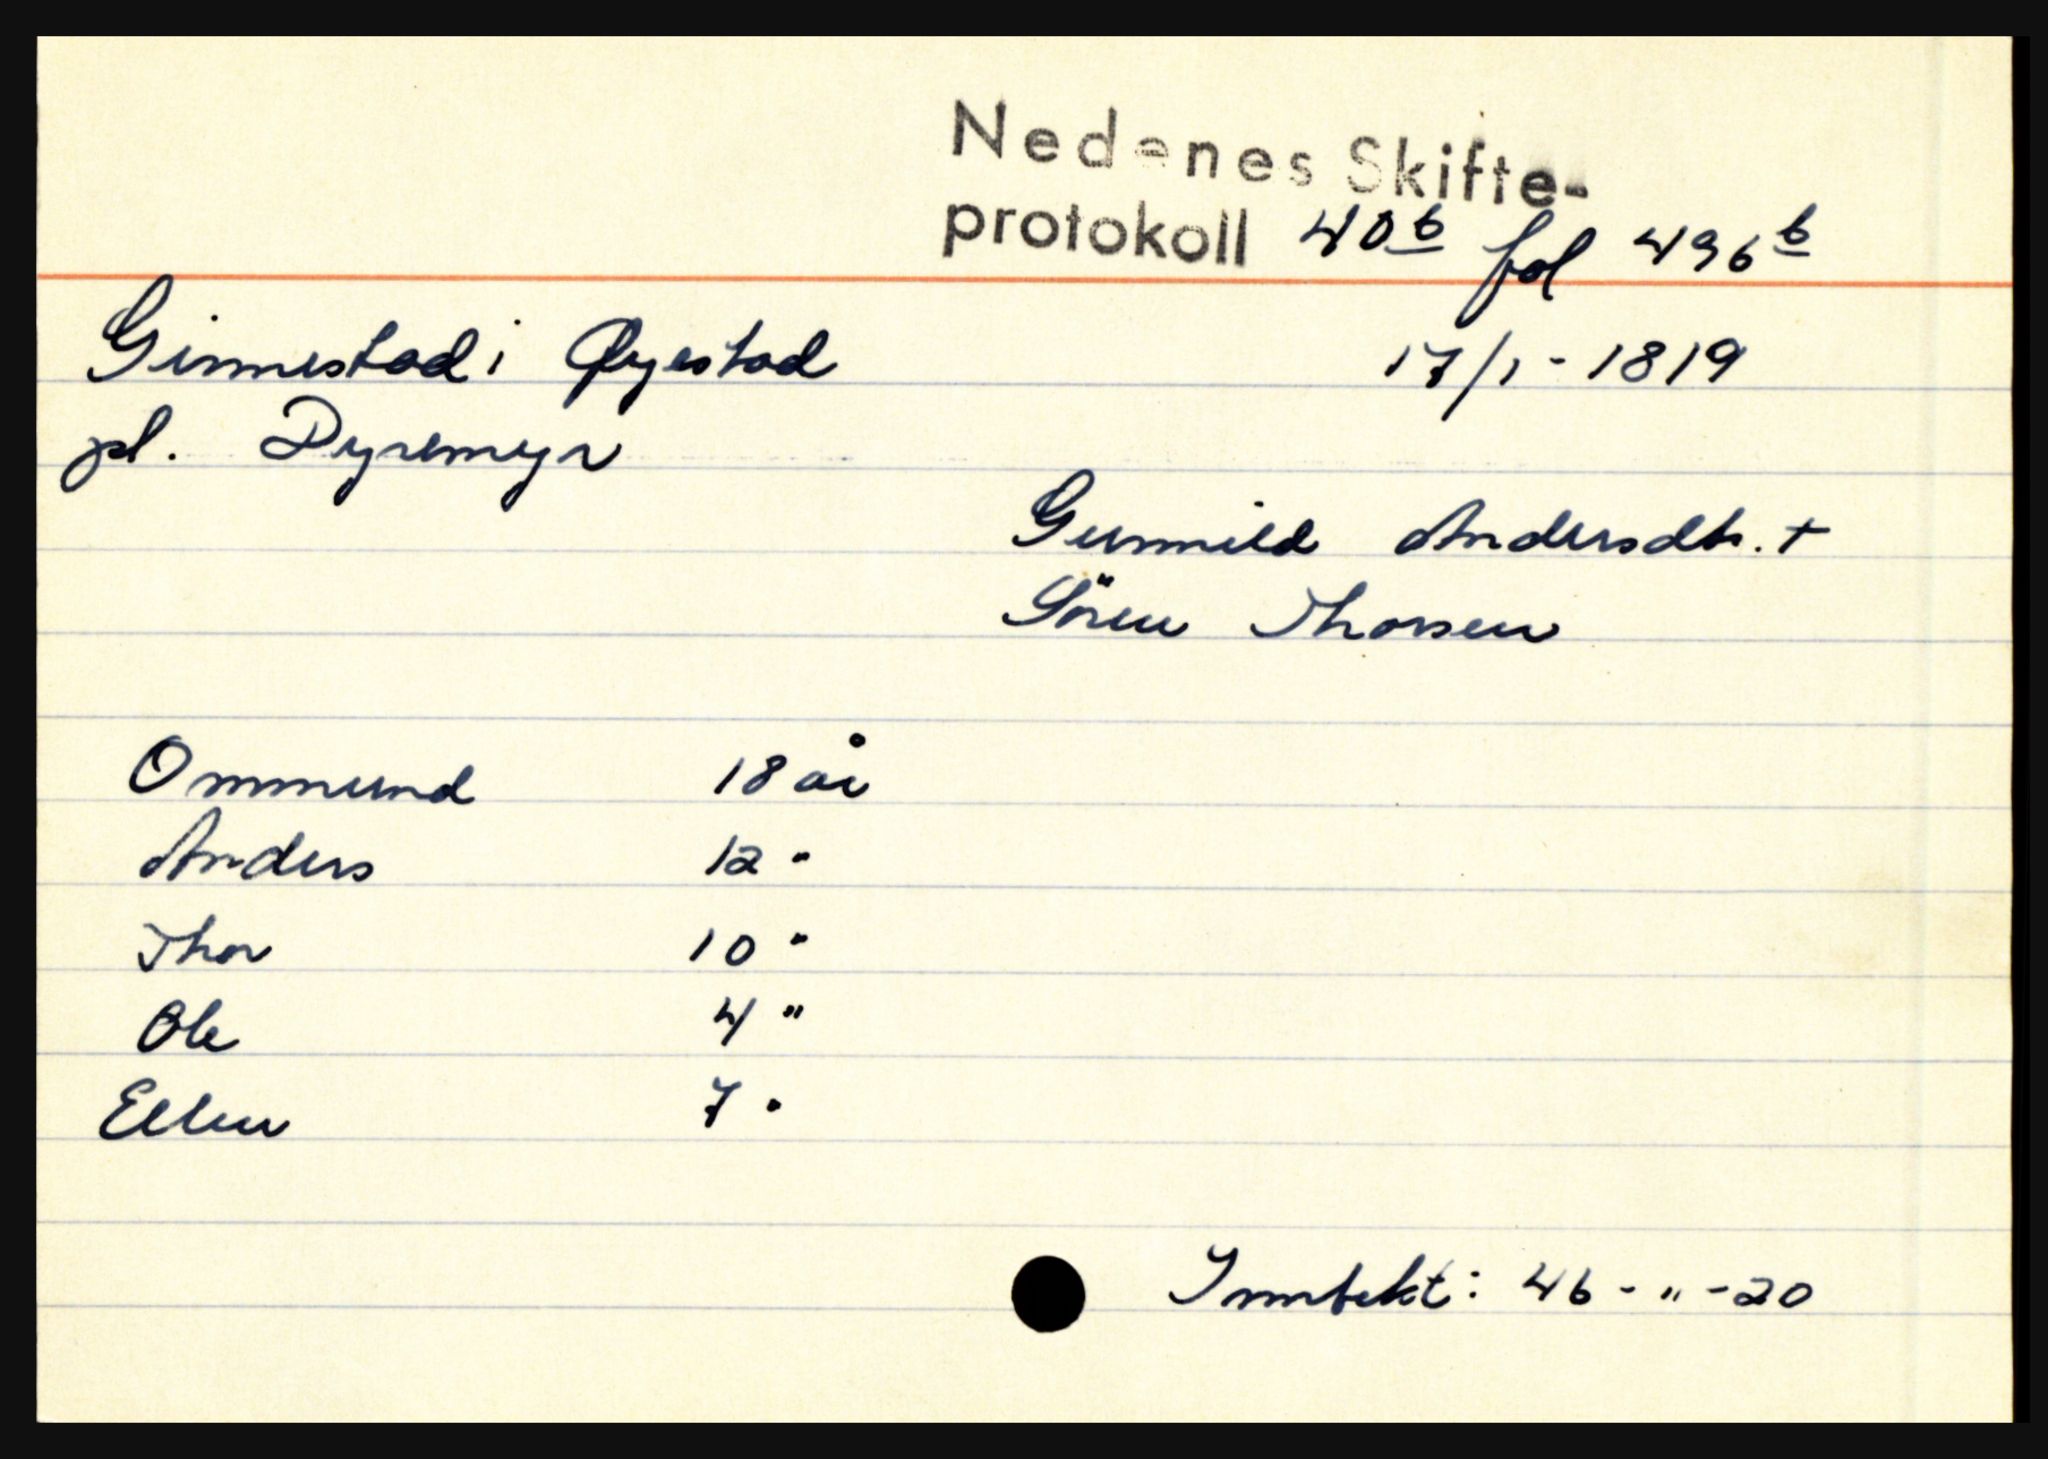 Nedenes Skifte-
protokoll 40b fol 496b
Ginnestad i Øyestad 17/1-1819
pl. Dyremyr
Gunnild Andersdtr. +
Sören Thorsen
Ommund 18 år
Anders 12 "
Thor 10 "
Ole 4 "
Ellen 7 "
Inntekt: 46 - " - 20